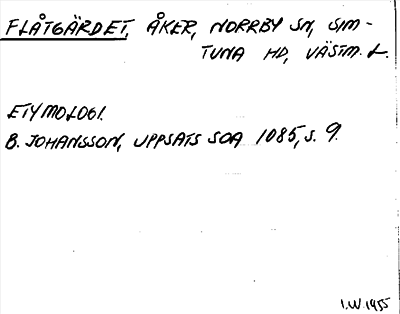 FLÅTGÄRDET, ÅKER, NORRBY SN, SIM-
TUNA HD, VÄSTM. L.
ETYMOLOGI.
B. JOHANSSON, UPPSATS SOA 1085, S. 9.
I.W 1955